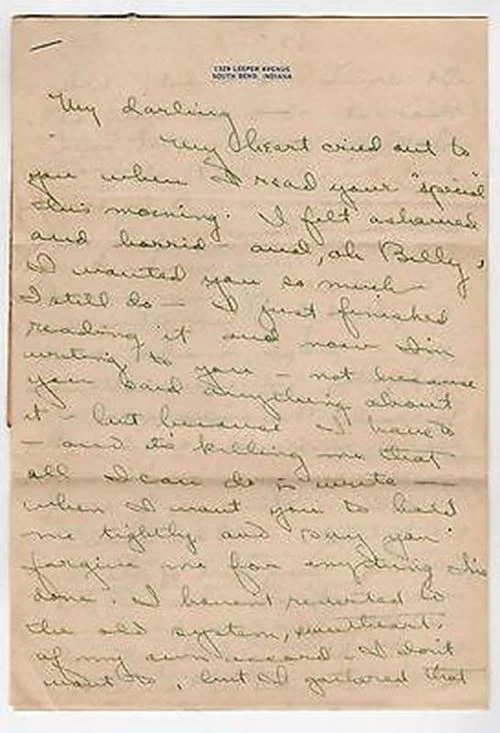 1329 LEEPER AVENUE
SOUTH BEND, INDIANA
My darling —
My heart cried out to
you when I read your "special"
this morning. I felt ashamed
and horrid – and, oh Billy,
I wanted you so much
I still do – I just finished
reading it and now I'm
writing to you – not because
you said anything about
it – but because I have to
– and it's killing me that
all I can do is write –
when I want you to hold
me tightly and say you
forgive me for anything I've
done. I haven't reverted to
the old system, sweetheart,
of my own accord – I don't
want to, but I gathered that